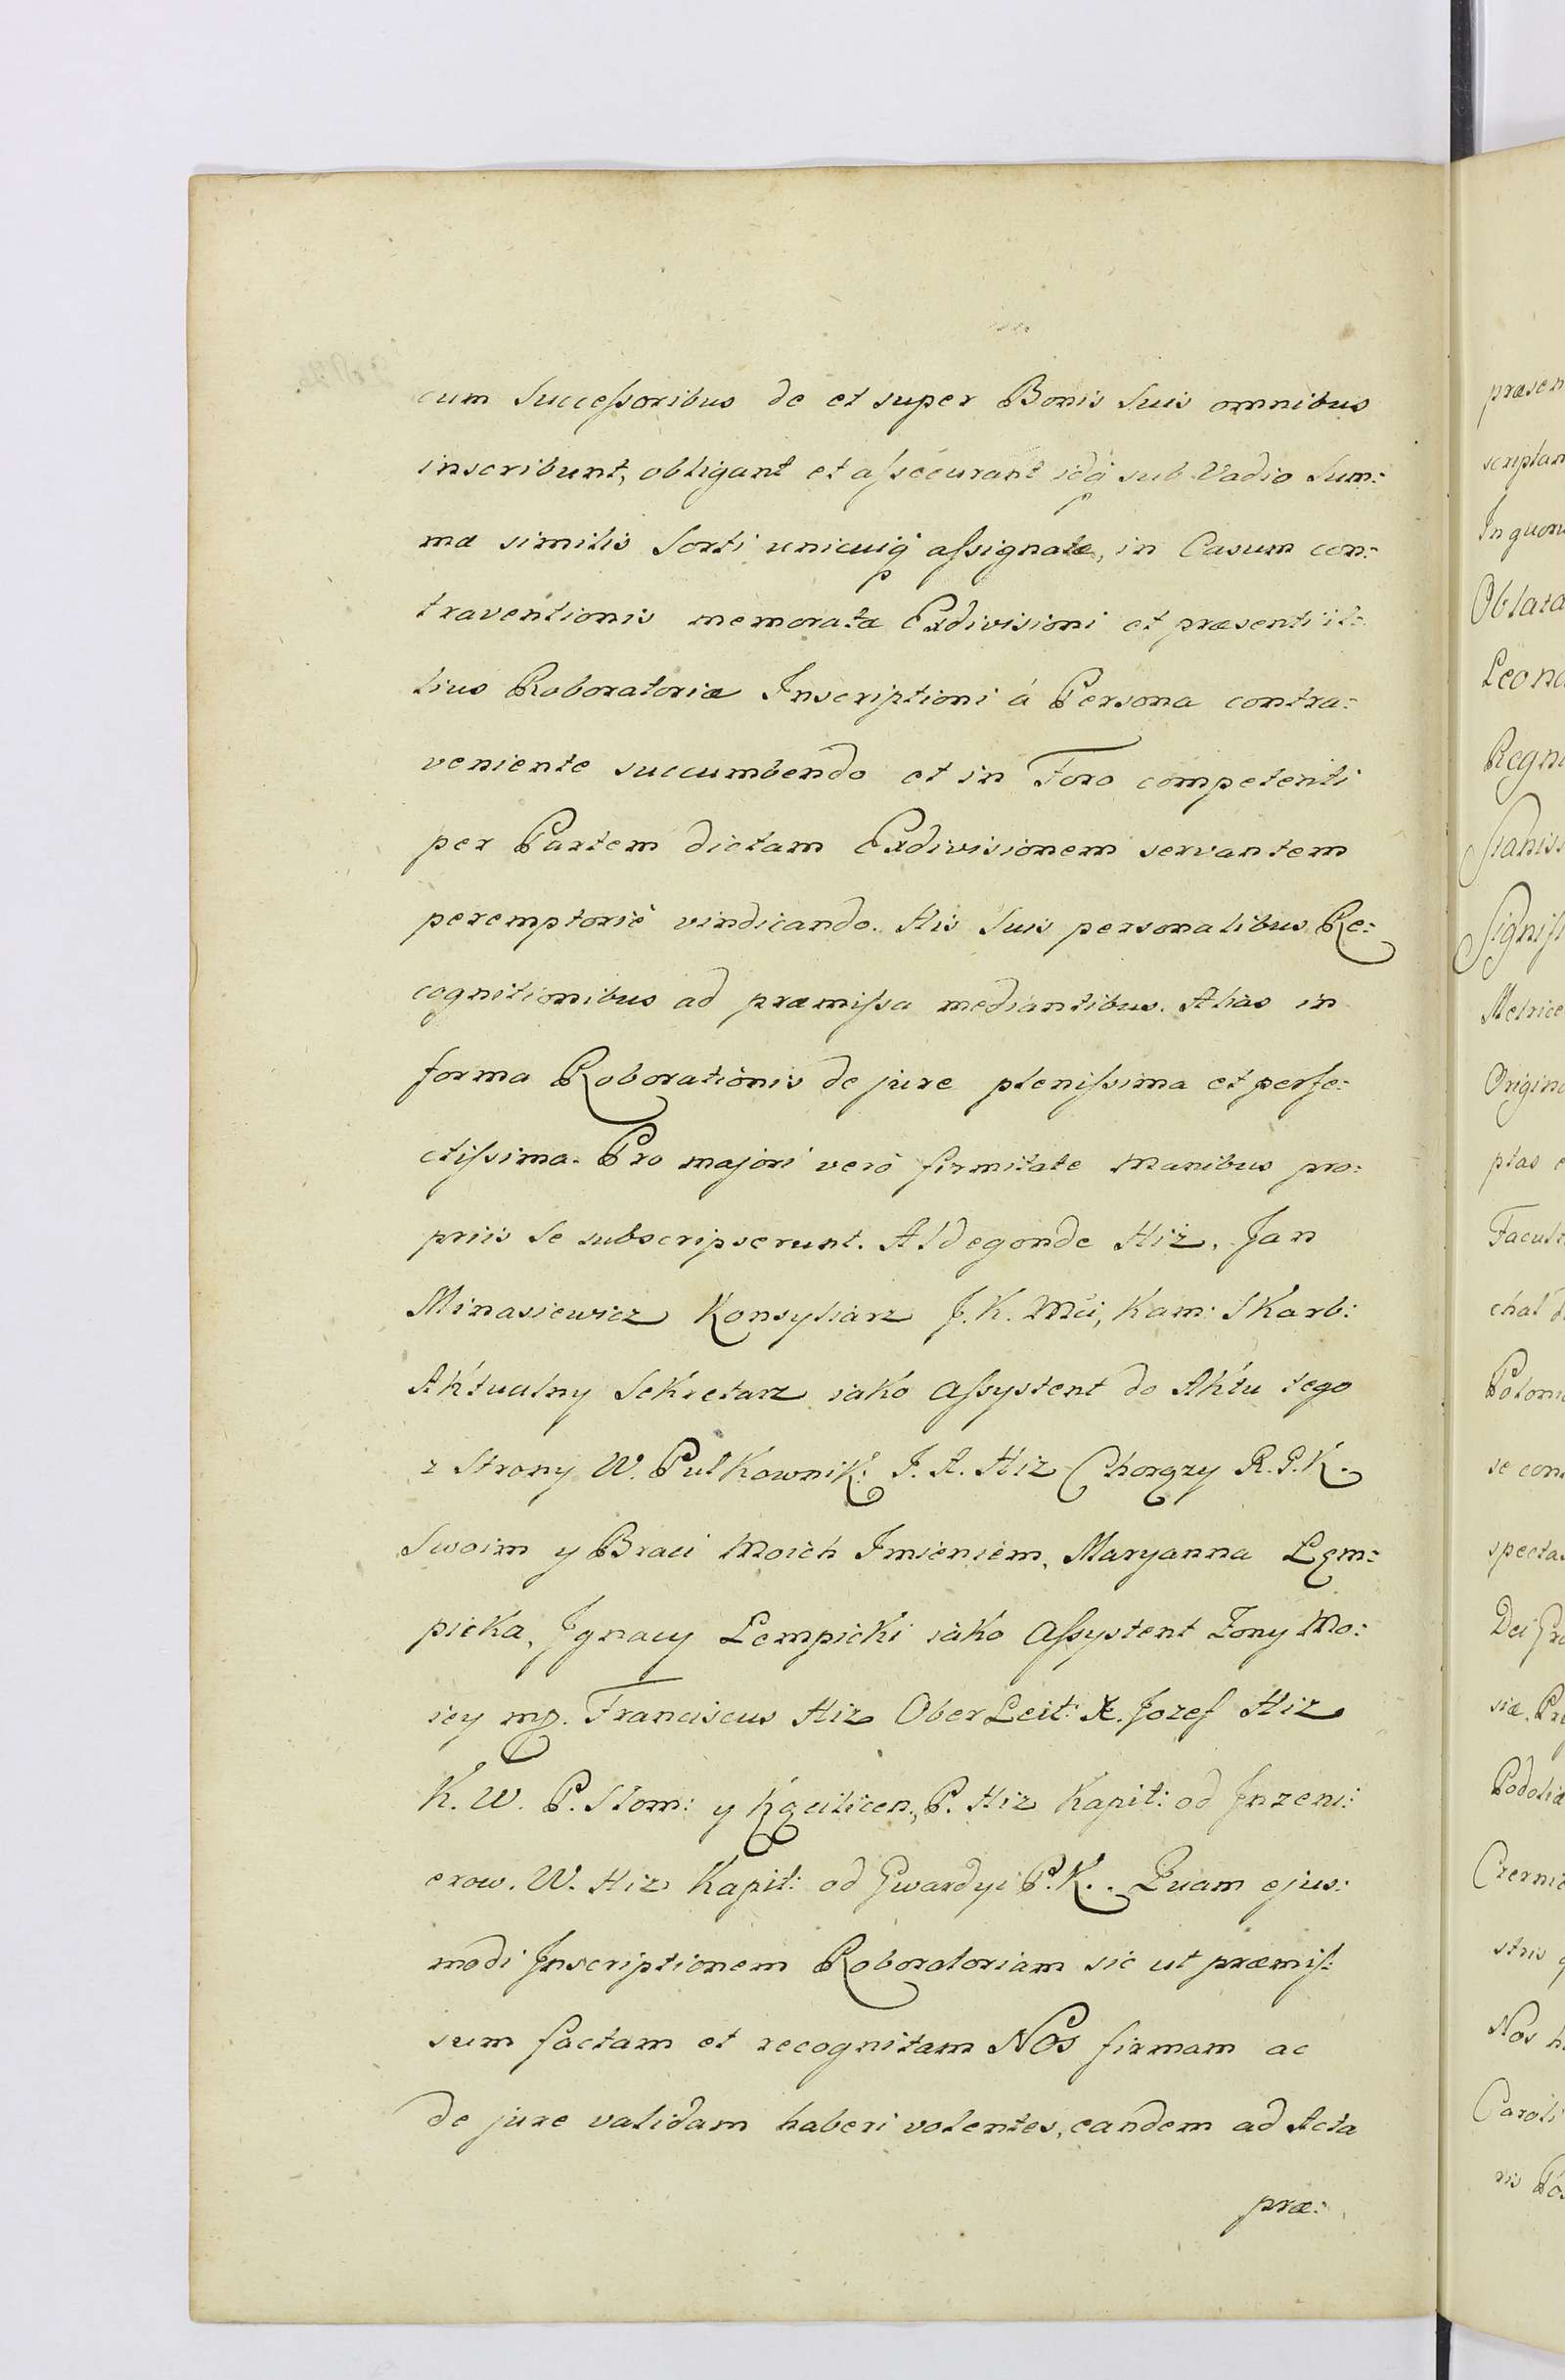 cum Successoribus de et super Bonis Suis omnibus
inscribunt, obligant et assecurant idq́ sub Vadio Sum:
mæ similis Sorti unicuiq́ assignatæ, in Casum con:
traventionis memoratæ Exdivisioni et præsenti il:
lius Roboratoriæ Inscriptioni á Persona contra:
veniente succumbendo et in Foro competenti
per Partem dictam Exdivisionem servantem
peremptoriè vindicando. His Suis personalibus Re:
cognitionibus ad præmissa mediantibus. Alias in
forma Roborationis de jure plenissima et perfe:
ctissima. Pro majori verò firmitate Manibus pro:
priis Se subscripserunt. Aldegonde Hiż. Jan
Minasiewicz Konsyliarz J. K. Mći, Kam: Skarb:
Aktualny Sekretarz iako Assystent do Aktu tego
z Strony W. Pulkownik: J. A. Hiz Chorązy R. P. K.
Swoim y Braci Moich Imieniem, Maryanna Łem:
picka, Jgnacy Łempicki iako Assystent Zony Mo:
iey mp. Franciscus Hiz Ober Leit: X. Jozef Hiz
K. W. P. Płom: y Kącilicen, P. Hiz Kapit: od Jnzeni:
erow. W. Hiz Kapit: od Gwardyi P. K.. Quam ejus:
modi Jnscriptionem Roboratoriam sic ut præmis:
sum factam et recognitam Nos firmam ac
de jure validam haberi volentes, eandem ad Acta
præ:
præsen
scriptam
Oblata
Regni
Signifi
Metrice
Origina
ptas
Facult
chal d
Poloni
se con
specta
Dei Gra
siæ, Pru
Podoliæ
Czerni
stris
Nos h
Caroli
ris